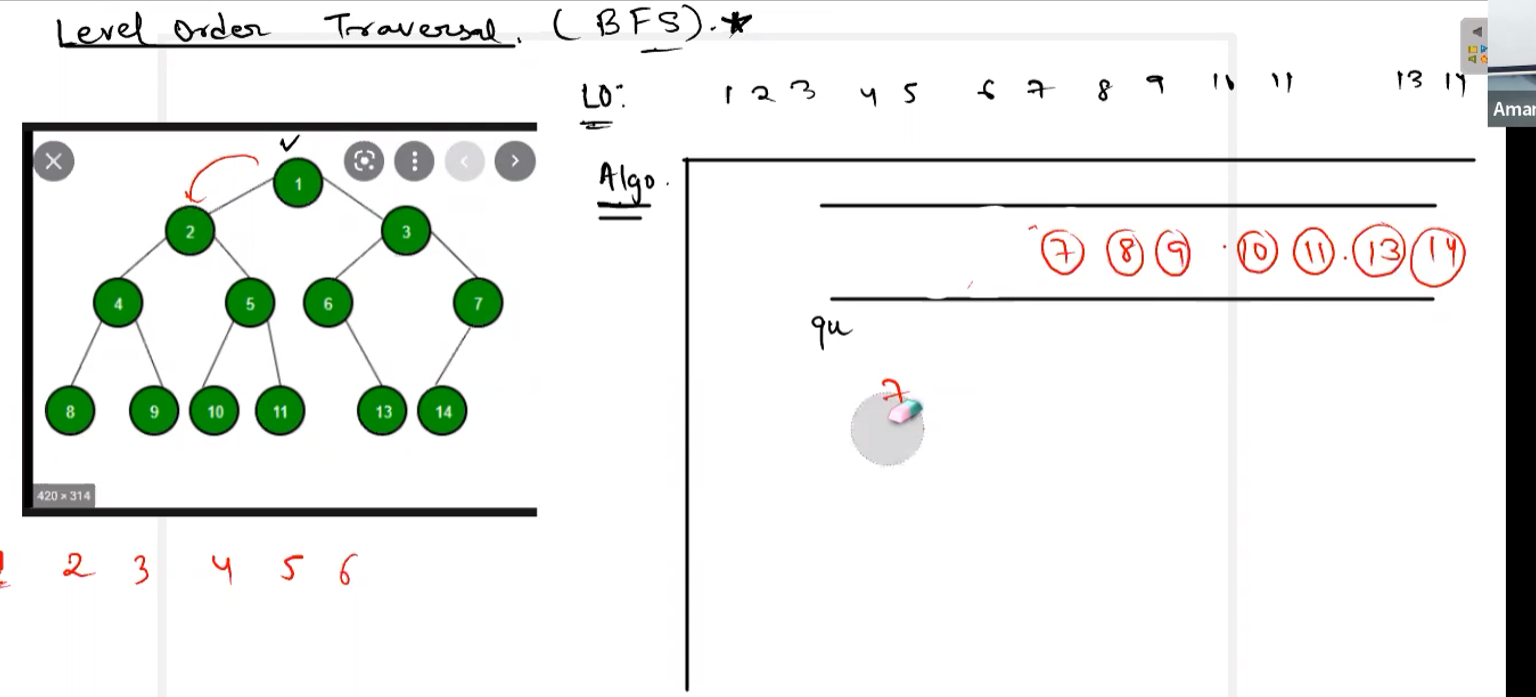 Level Order Traversal. (BFS).★
LO: 1 2 3 4 5 6 7 8 9 10 11 13 14
Aman
Algo.
1
2 3
4 5 6 7
8 9 10 11 13 14
420 × 314
7 8 9 10 11 13 14
qu
7
1 2 3 4 5 6